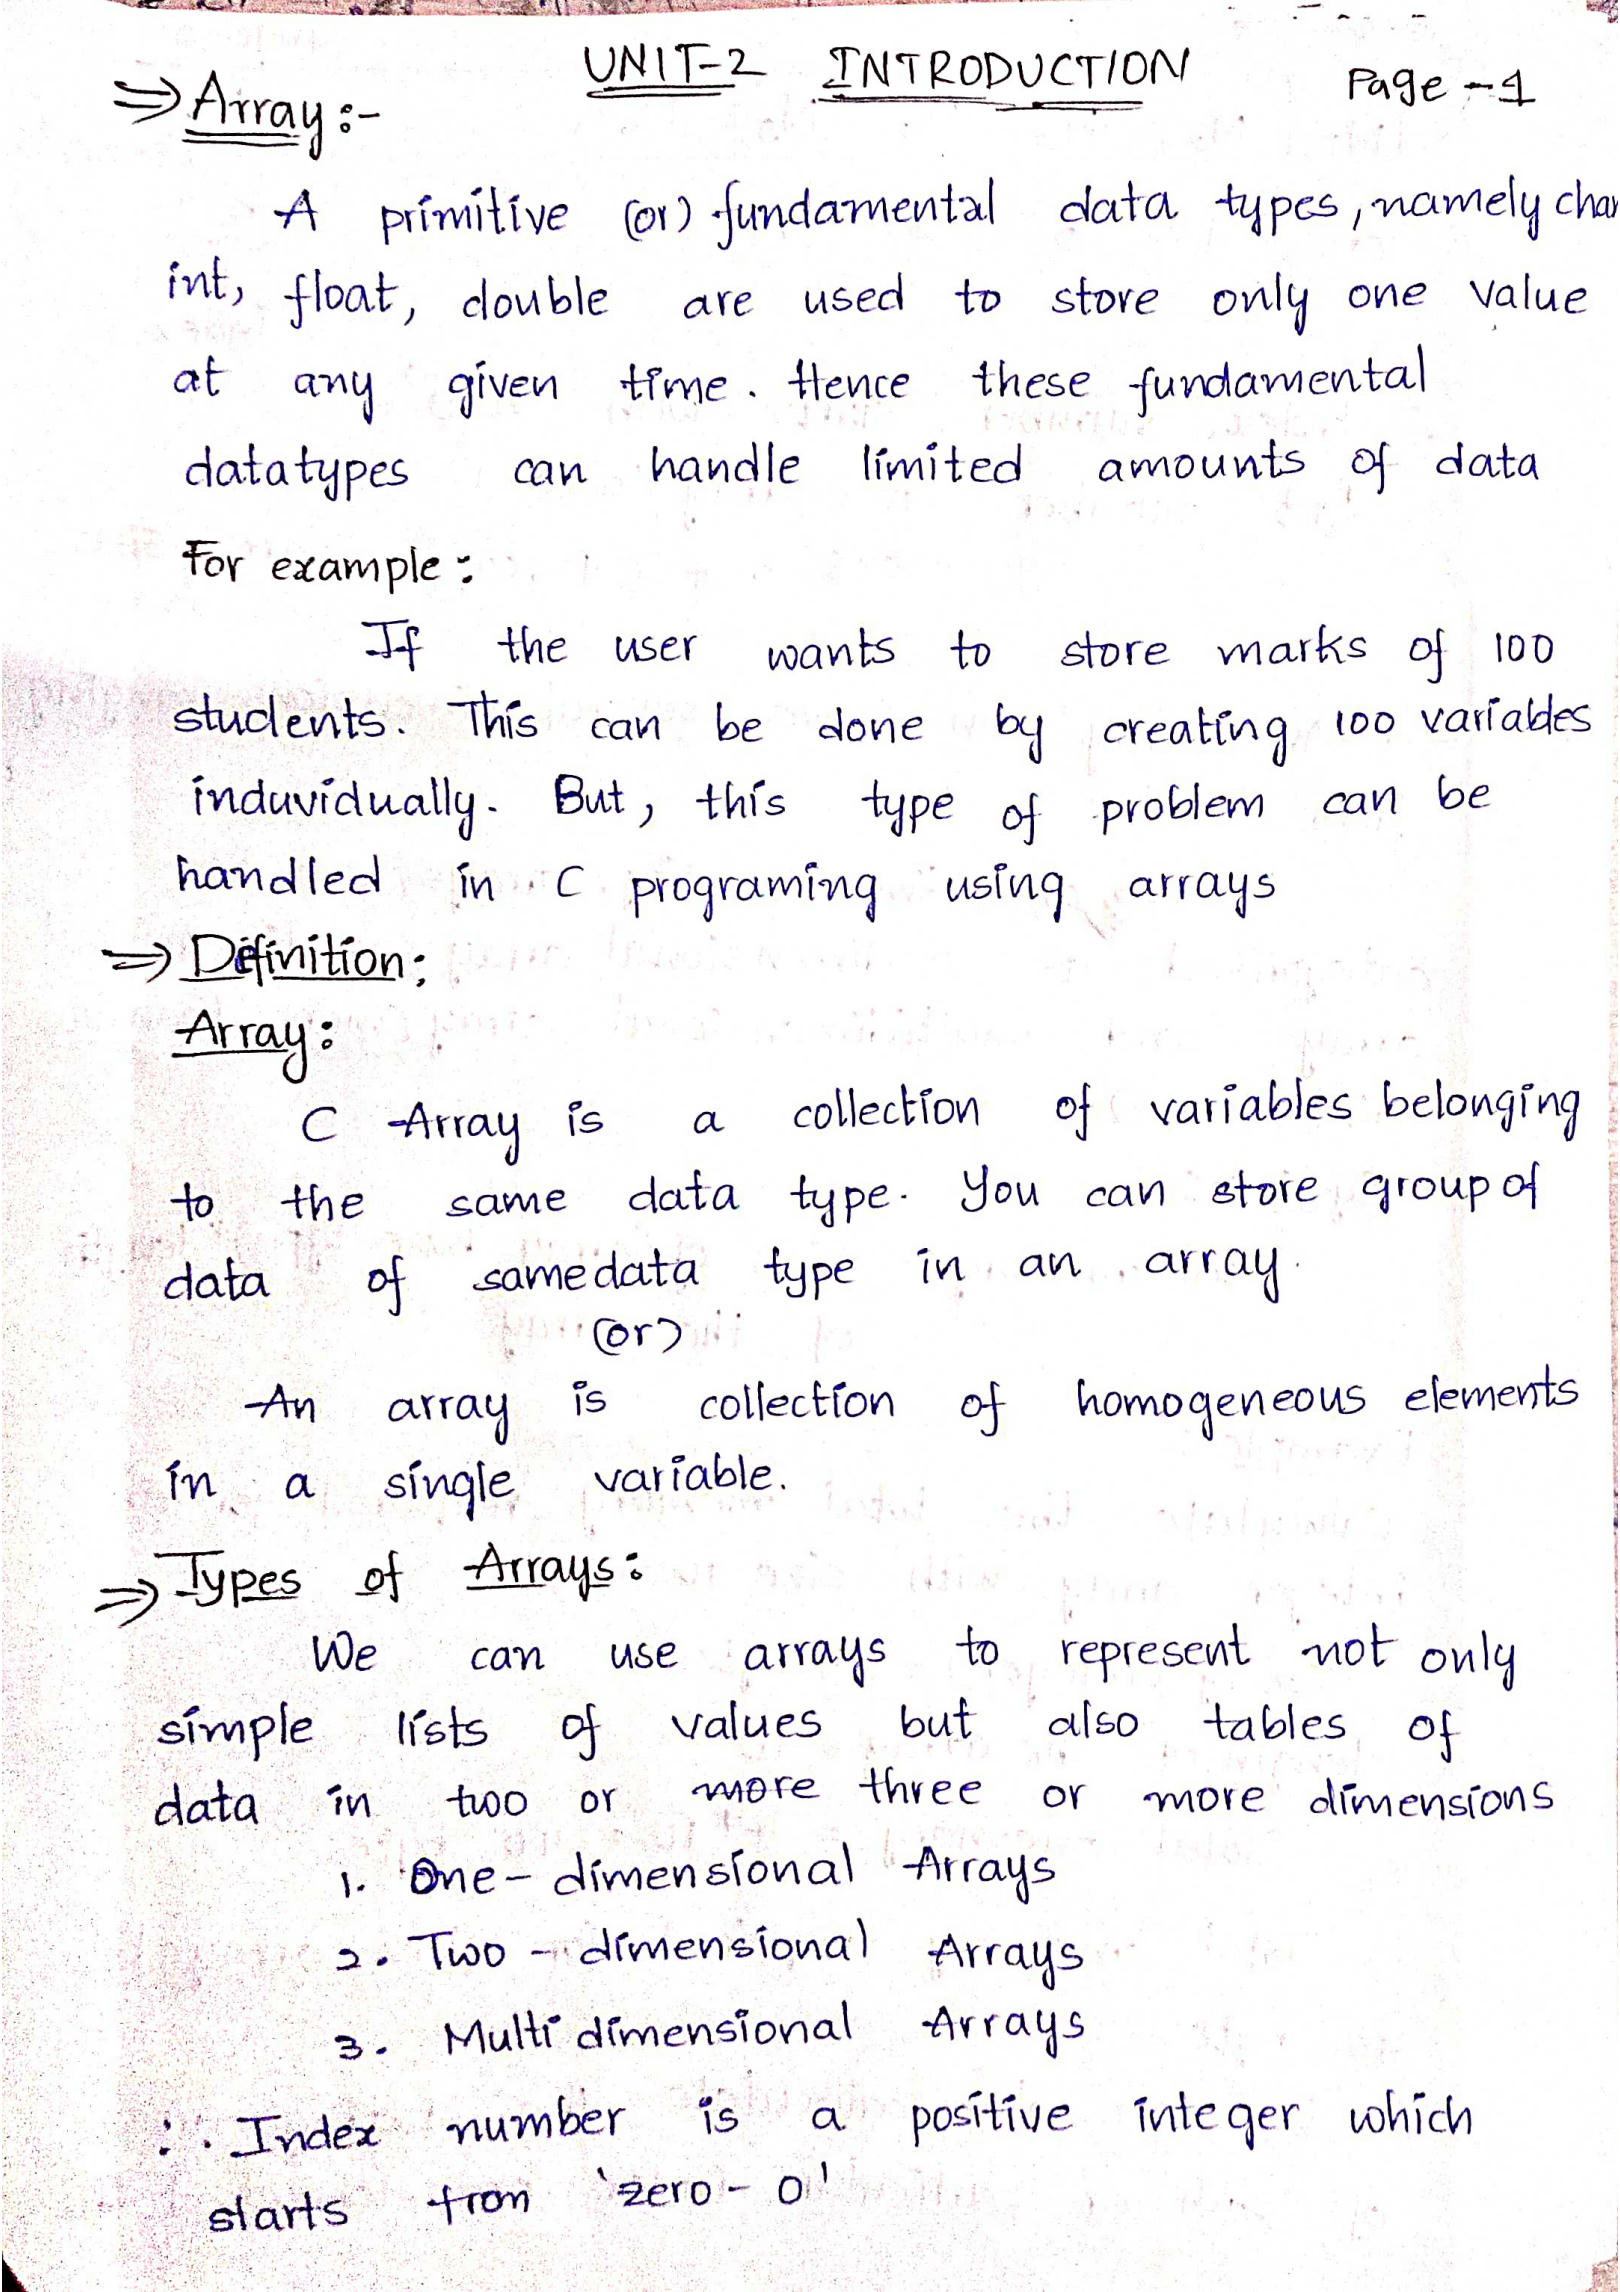 UNIT-2 INTRODUCTION Page - 1
⇒ Array :-
A primitive (or) fundamental data types, namely char
int, float, double are used to store only one value
at any given time. Hence these fundamental
datatypes can handle limited amounts of data
For example :
If the user wants to store marks of 100
students. This can be done by creating 100 variables
induvidually. But, this type of problem can be
handled in C programing using arrays
⇒ Definition:
Array:
C Array is a collection of variables belonging
to the same data type. You can store group of
data of same data type in an array.
(or)
An array is collection of homogeneous elements
in a single variable.
⇒ Types of Arrays:
We can use arrays to represent not only
simple lists of values but also tables of
data in two or more three or more dimensions
1. One - dimensional Arrays
2. Two - dimensional Arrays
3. Multi dimensional Arrays
∴ Index number is a positive integer which
starts from 'zero - 0'